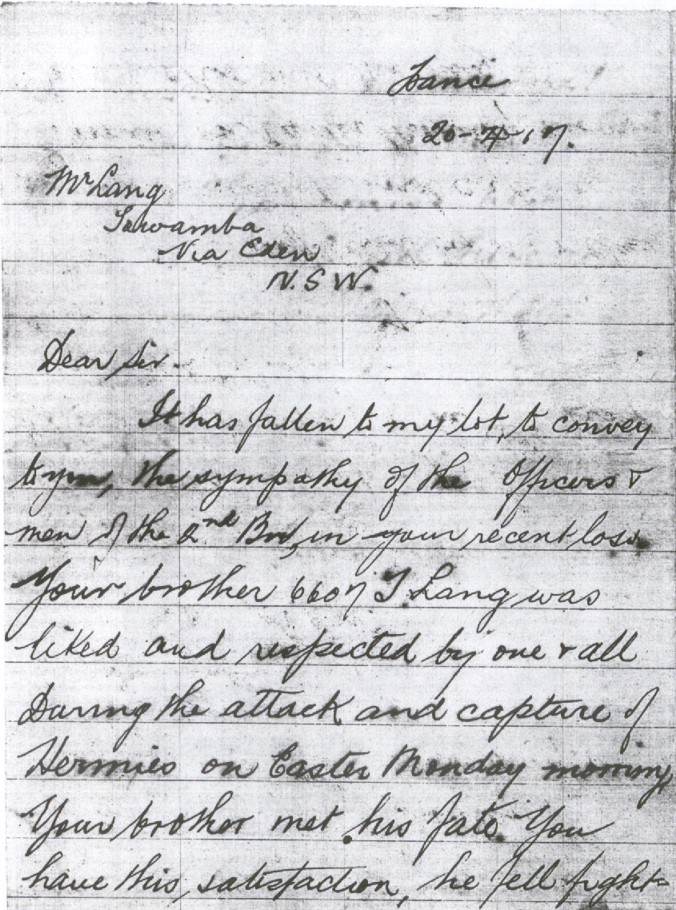 France
20-4-17.
Mr Lang
Towamba
Via Eden
N.S.W.
Dear Sir.
It has fallen to my lot, to convey
to you, the sympathy of the Officers &
men of the 2nd Bn, in your recent loss
Your brother 6607 T Lang was
liked and respected by one & all
During the attack and capture of
Hermies on Easter Monday morning
Your brother met his fate. You
have this, satisfaction, he fell fight-